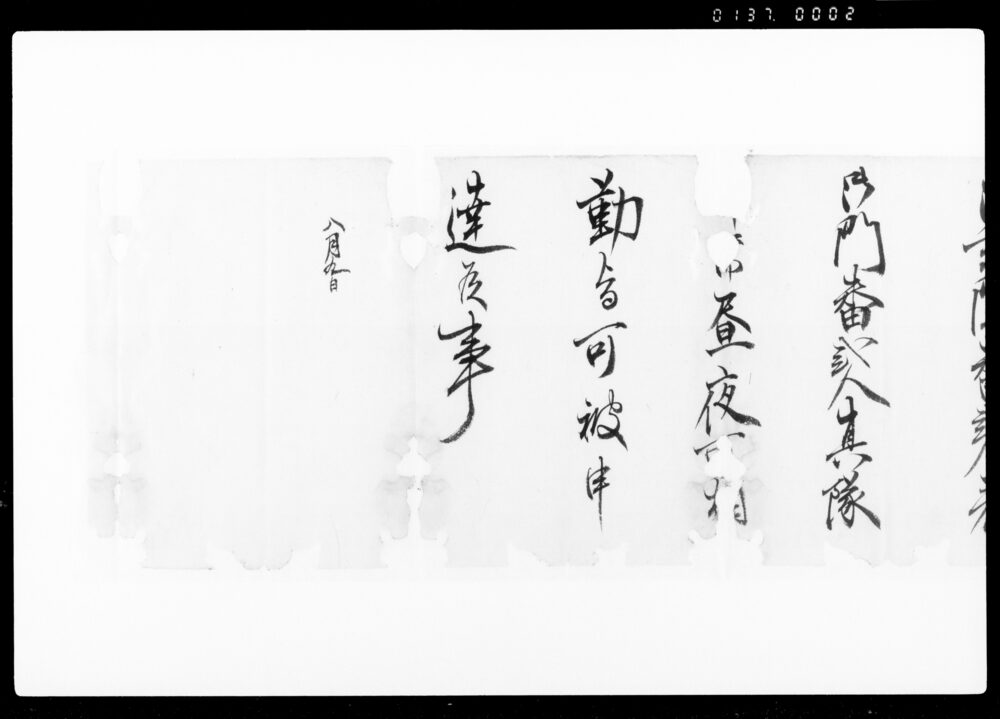 0137. 0002
御門番弐人其隊
昼夜可相
勤旨可被申
達候事
八月九日